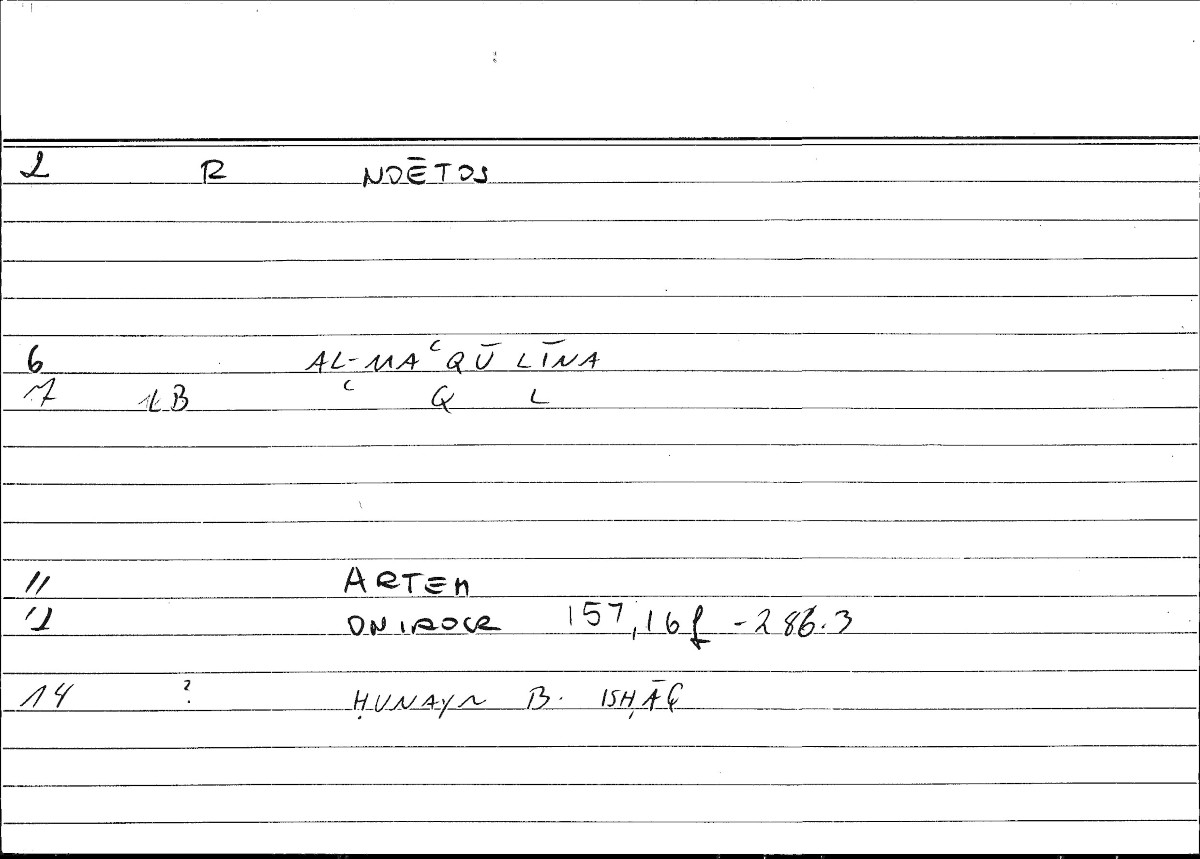 2 R NOĒTOS
6 AL-MAʿQŪLĪNA
7 1LB ʿ Q L
11 ARTEM
12 ONIROCR 157,16f - 286.3
14 ? ḤUNAYN B. ISḤĀQ